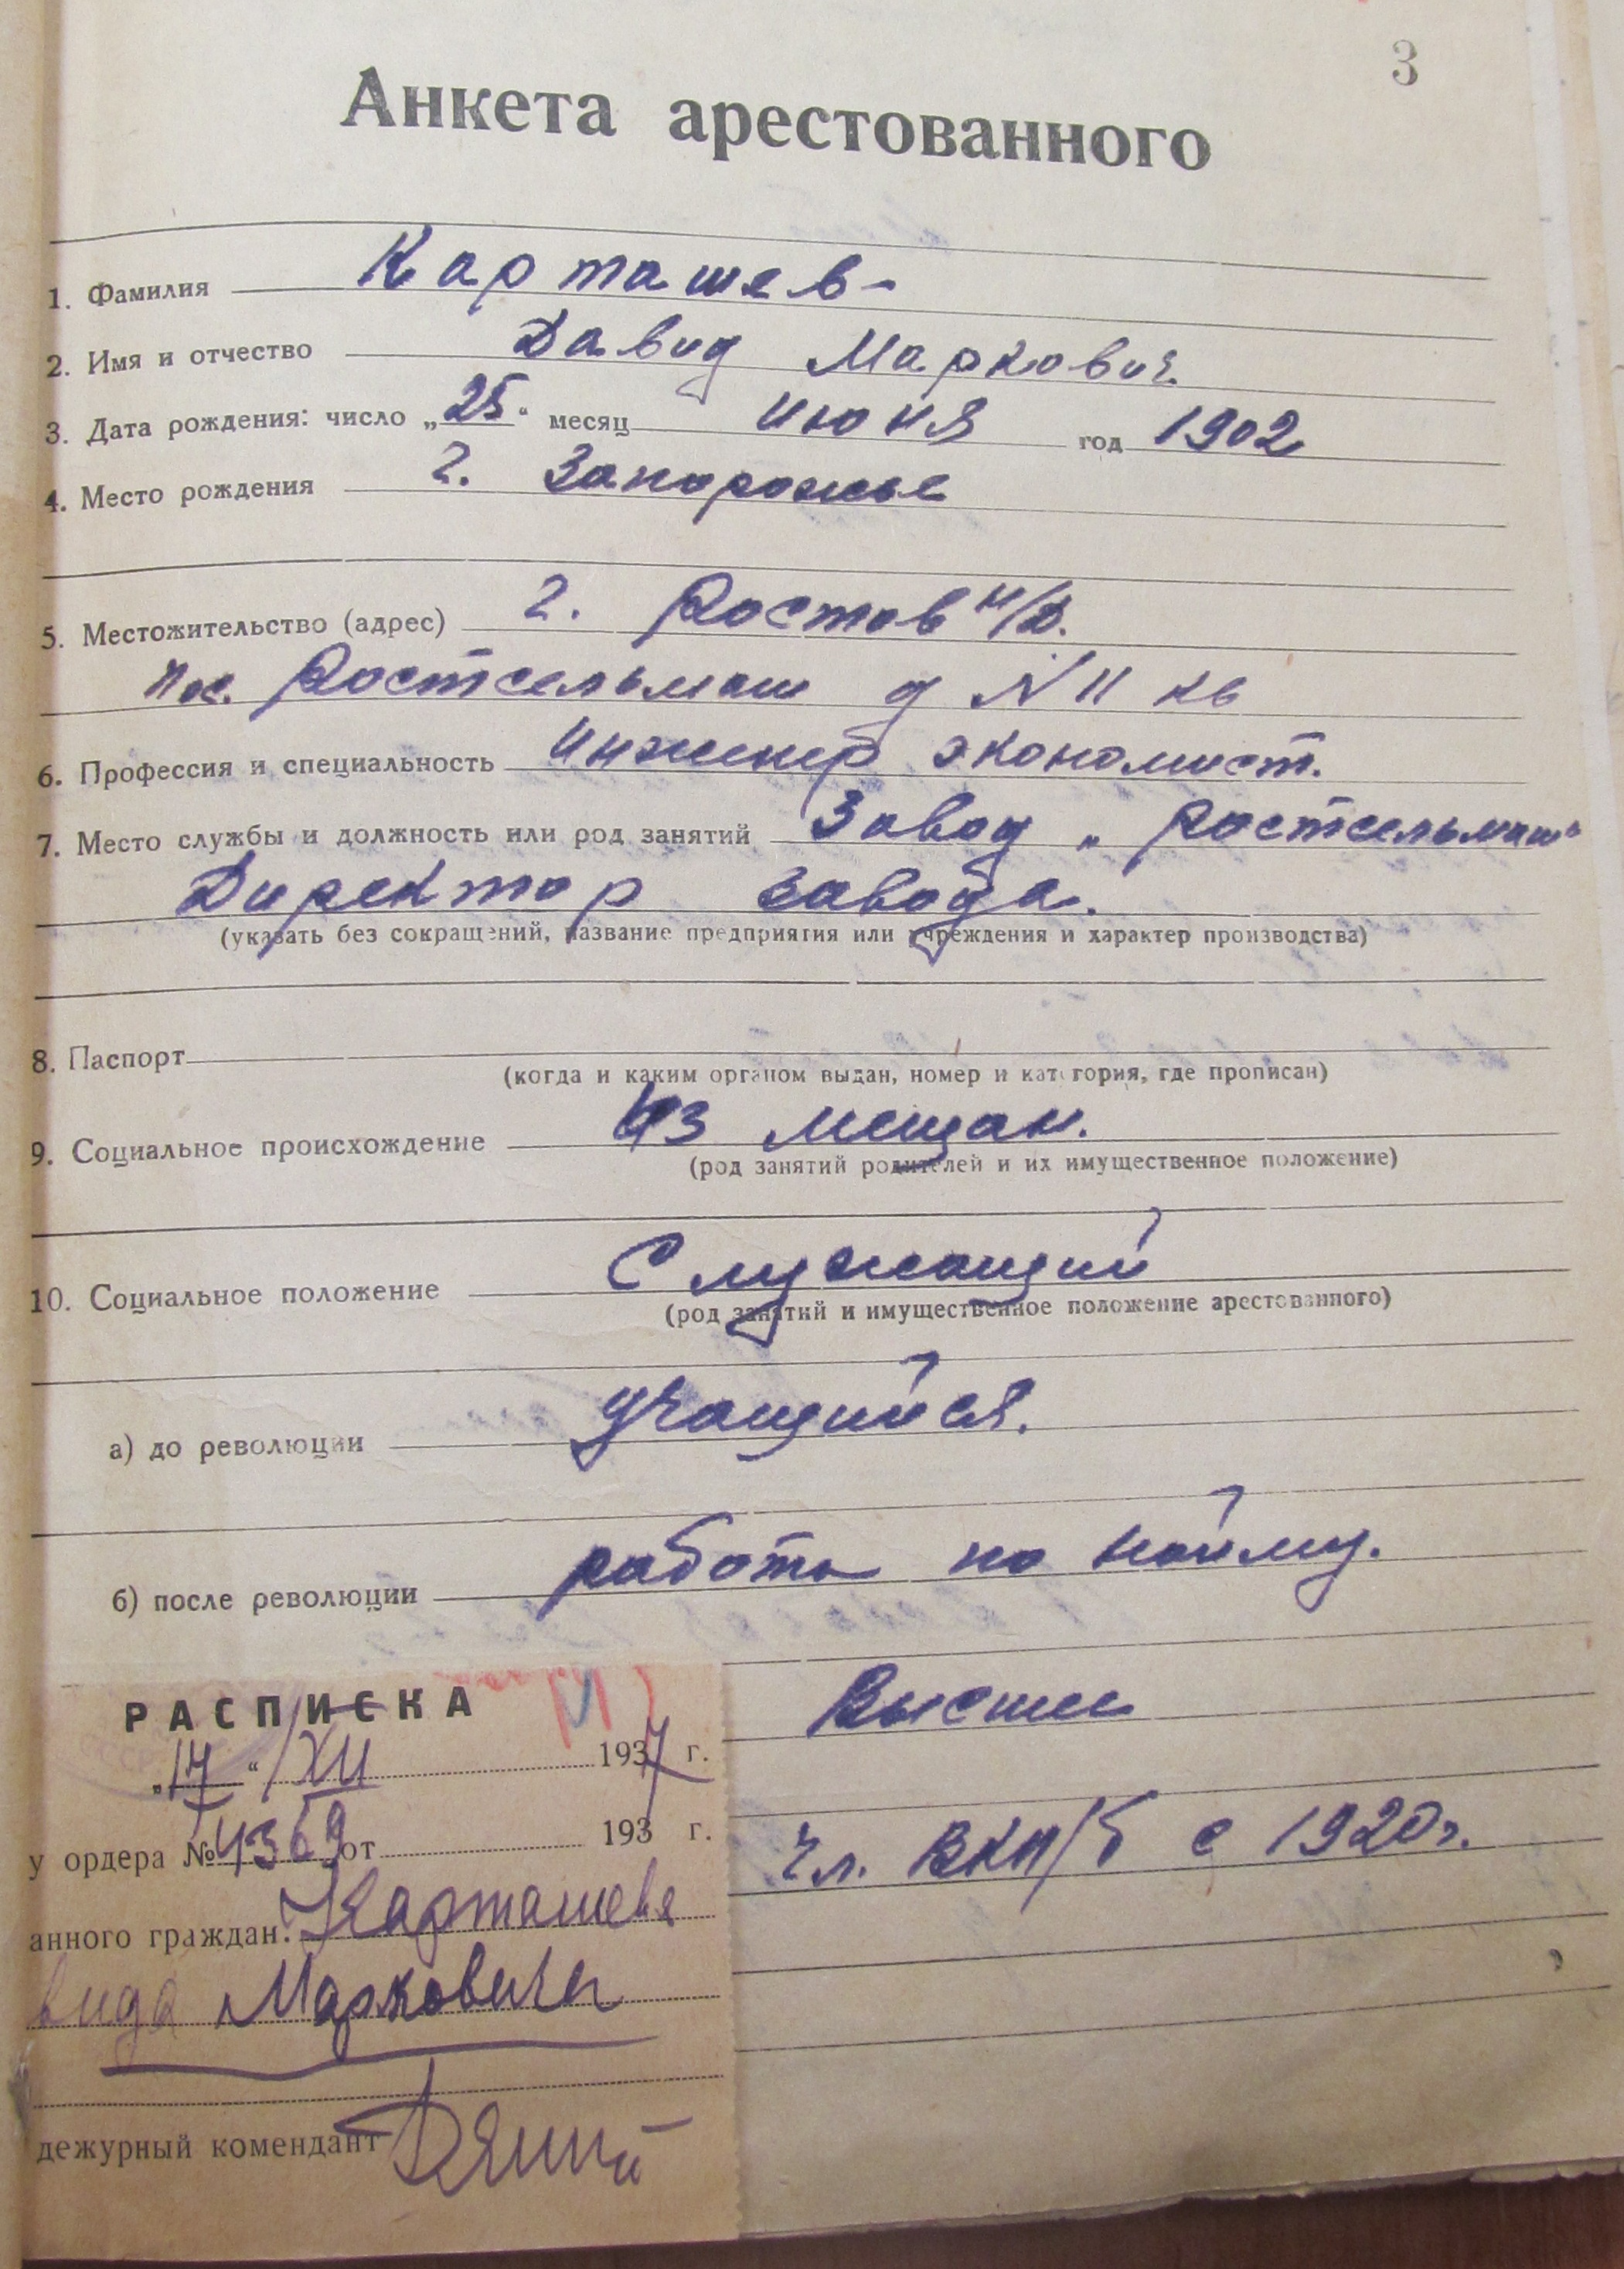 3
Анкета арестованного
1. Фамилия Карташев
2. Имя и отчество Давид Маркович
3. Дата рождения: число „25“ месяц июня год 1902
4. Место рождения г. Запорожье
5. Местожительство (адрес) г. Ростов н/Д.
пос. Ростсельмаш д N 11 кв
6. Профессия и специальность инженер экономист.
7. Место службы и должность или род занятий Завод „Ростсельмаш“
Директор завода.
(указать без сокращений, название предприятия или учреждения и характер производства)
8. Паспорт
(когда и каким органом выдан, номер и категория, где прописан)
9. Социальное происхождение Из мещан.
(род занятий родителей и их имущественное положение)
10. Социальное положение Служащий
(род занятий и имущественное положение арестованного)
а) до революции учащийся.
б) после революции работа по найму.
Высшее
Чл. ВКП/б с 1920 г.
РАСПИСКА
„17“ /XII 1937 г.
у ордера № 4369 от 193 г.
анного граждан. Карташева
вида Марковича
дежурный комендант